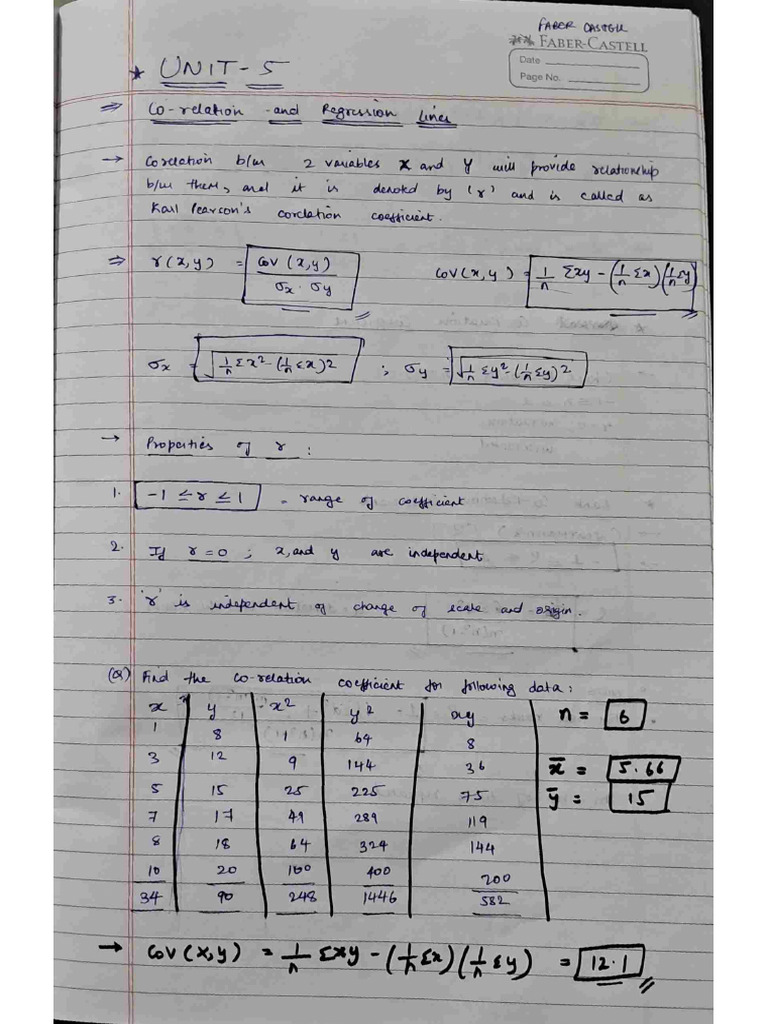 FABER CASTELL
FABER-CASTELL
Date
Page No.
* UNIT-5
⇒ Co-relation and Regression lines
→ Corelation b/w 2 variables x and y will provide relationship
b/w them, and it is denoted by (r) and is called as
Karl Pearson's corelation coefficient.
⇒ r(x,y) = cov(x,y) / σx · σy    cov(x,y) = 1/n Σxy - (1/n Σx)(1/n Σy)
σx = √1/n Σx² - (1/n Σx)2 ; σy = √1/n Σy² - (1/n Σy)2
→ Properties of r :
1. -1 ≤ r ≤ 1 = range of coefficient
2. If r = 0 ; x, and y are independent
3. 'r' is independent of change of scale and origin.
(Q) Find the co-relation coefficient for following data :
x y x² y² xy n = 6
1 8 1 64 8
3 12 9 144 36 x̄ = 5.66
5 15 25 225 75 ȳ = 15
7 17 49 289 119
8 18 64 324 144
10 20 100 400 200
34 90 248 1446 582
→ cov(x,y) = 1/n Σxy - (1/n Σx)(1/n Σy) = 12.1